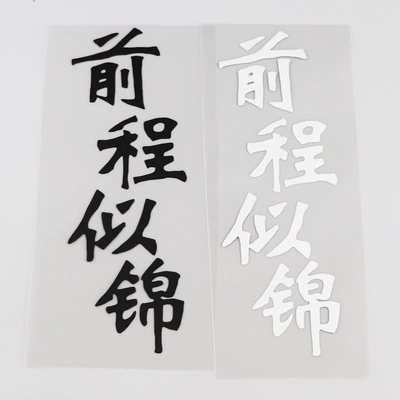 前程似锦
前程似锦